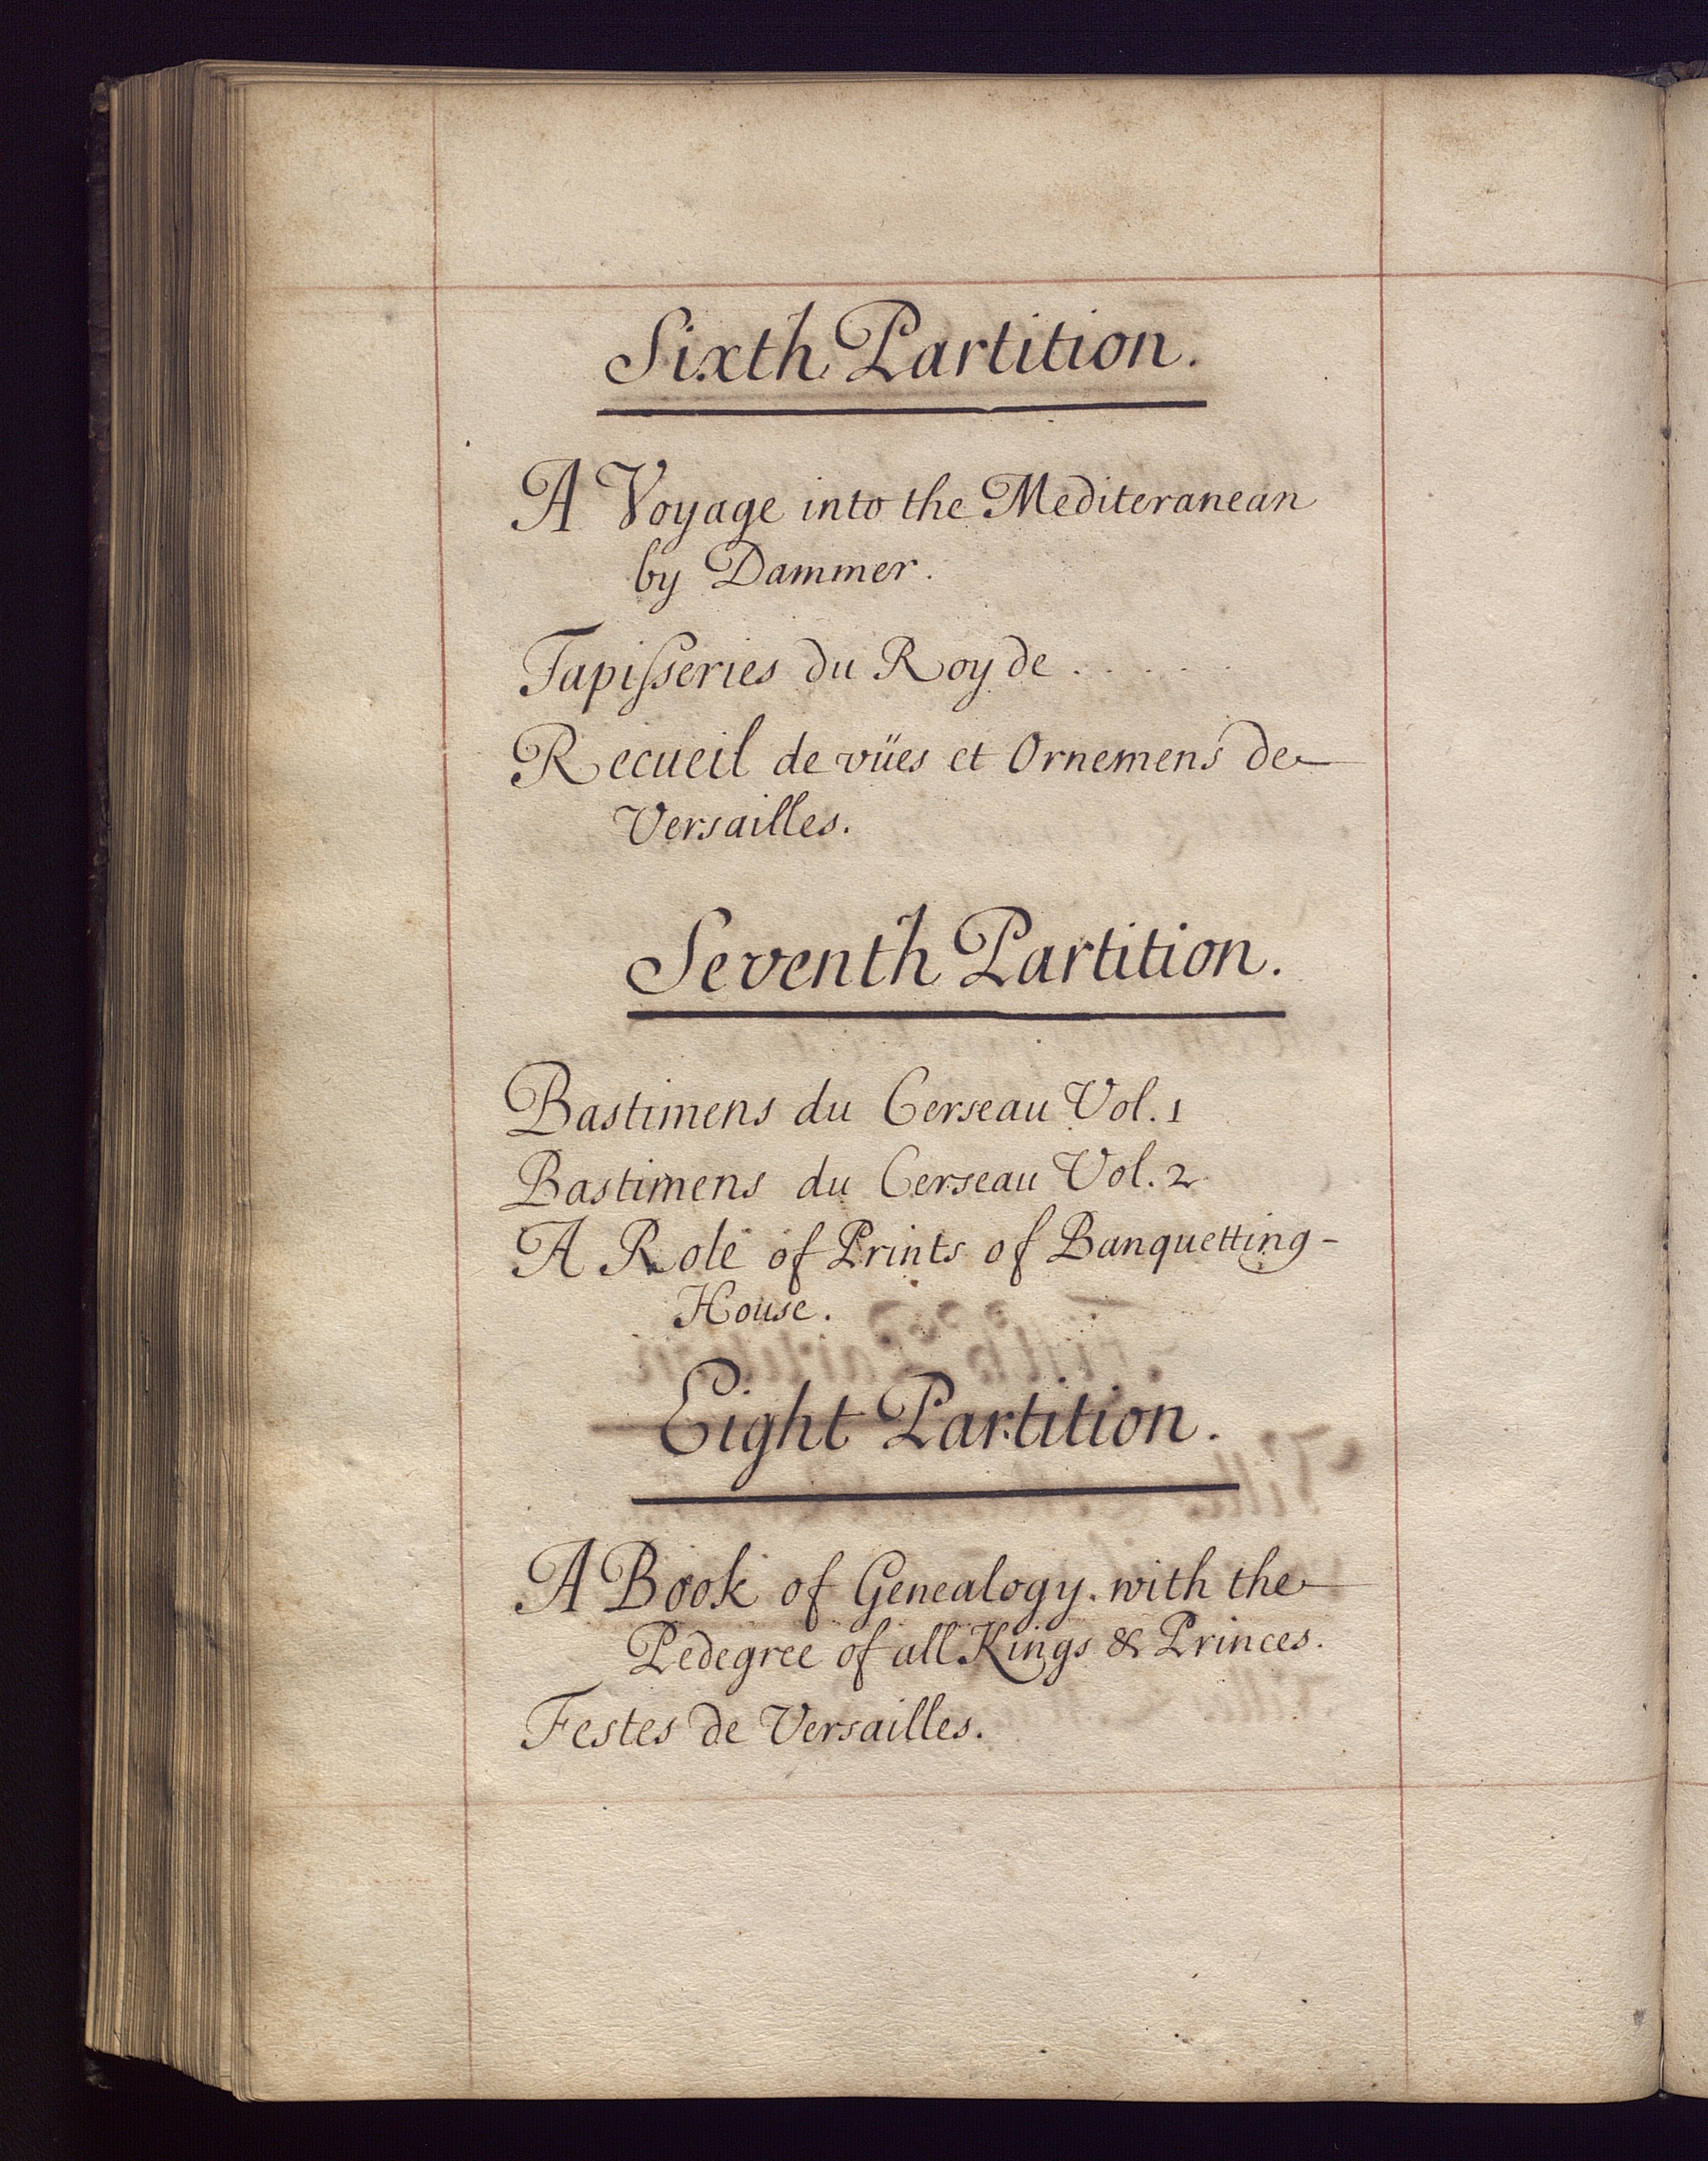 Sixth Partition.
A Voyage into the Mediteranean
by Dammer.
Tapiſseries du Roy de . . . . .
Recueil de vües et Ornemens de
Versailles.
Seventh Partition.
Bastimens du Cerseau Vol. 1
Bastimens du Cerseau Vol. 2
A Role of Prints of Banquetting-
House.
Eight Partition.
A Book of Genealogy. with the
Pedegree of all Kings & Princes.
Festes de Versailles.